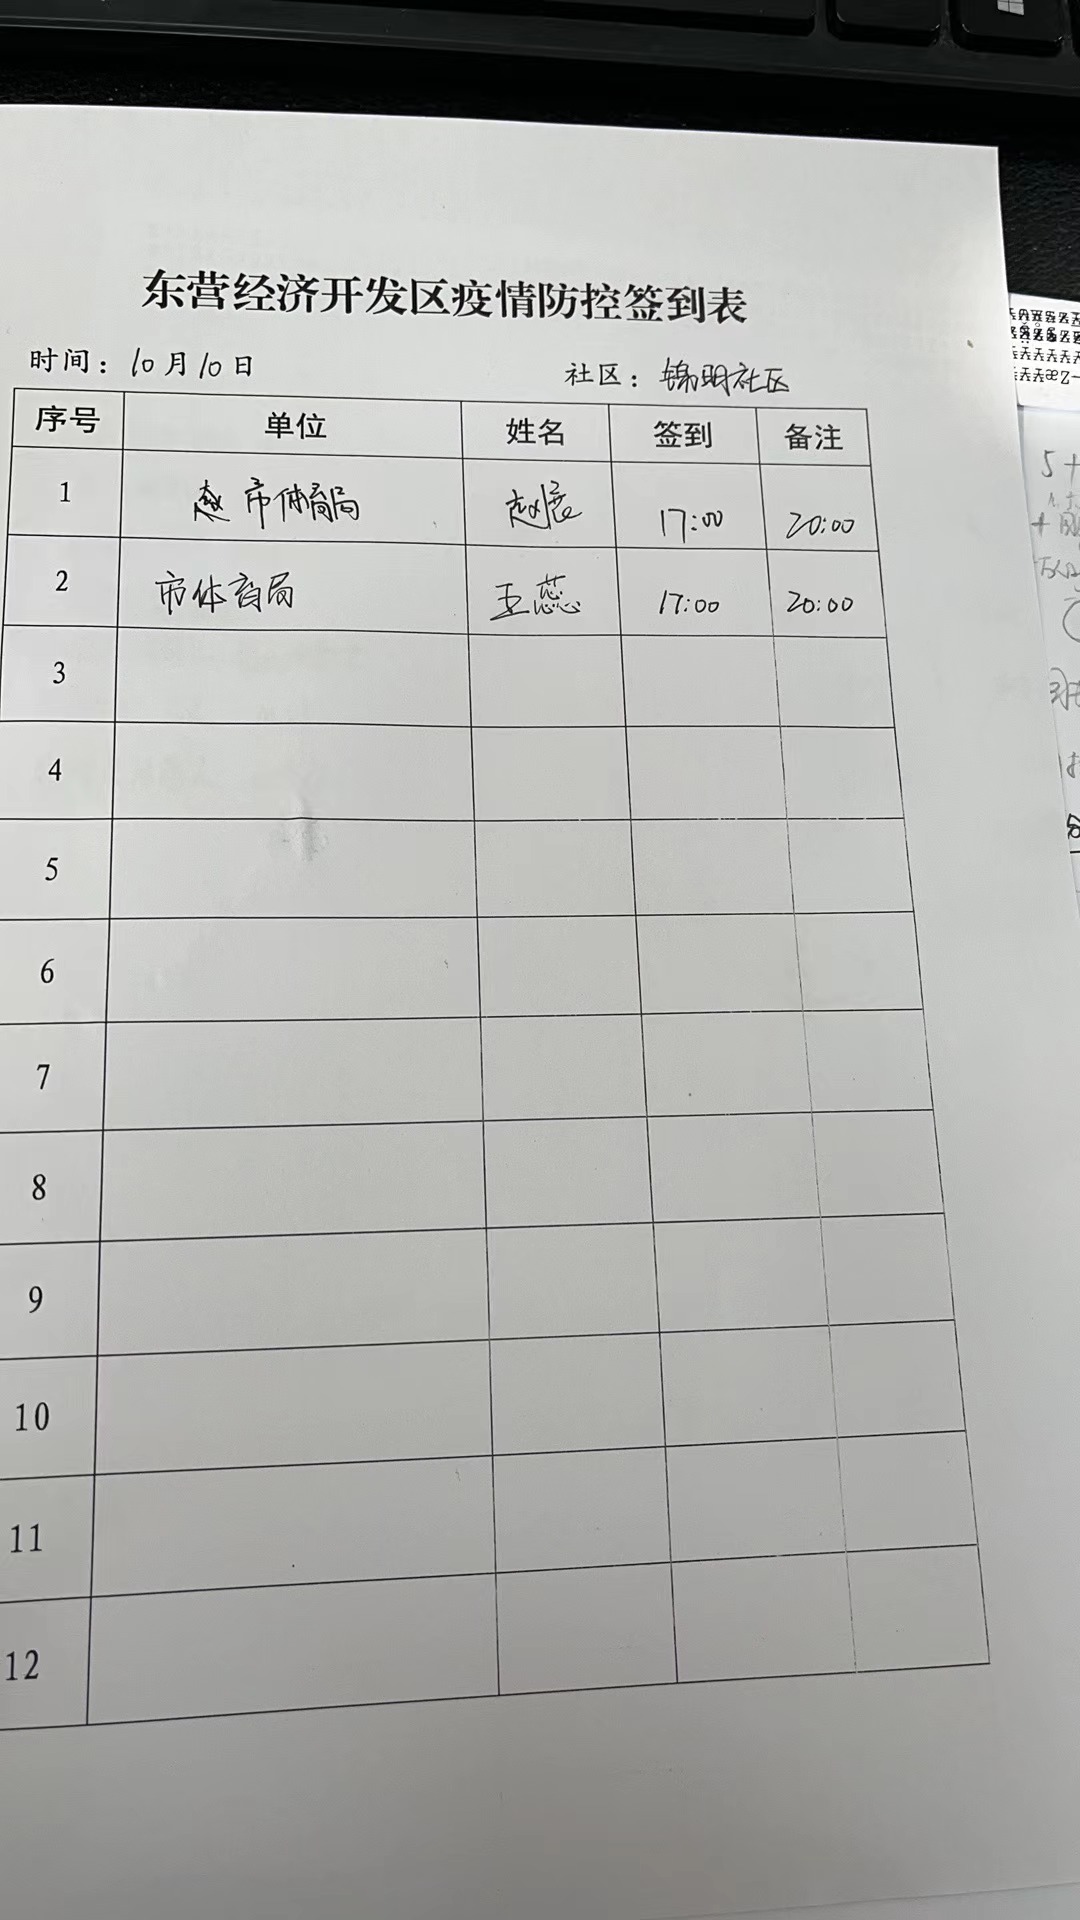 东营经济开发区疫情防控签到表
时间：10月10日 社区：锦明社区
序号 单位 姓名 签到 备注
1 市体育局 赵展 17:00 20:00
2 市体育局 王蕊 17:00 20:00
3
4
5
6
7
8
9
10
11
12